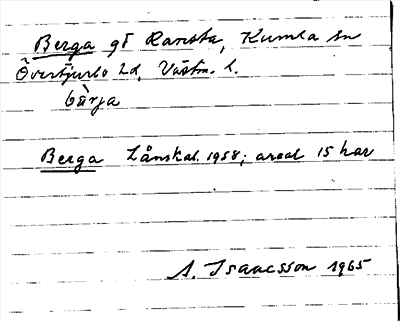 Berga gd Ransta, Kumla sn
Övertjurbo hd, Västm. l.
bärja
Berga Länskal. 1958; areal 15 har
A. Isaacsson 1965